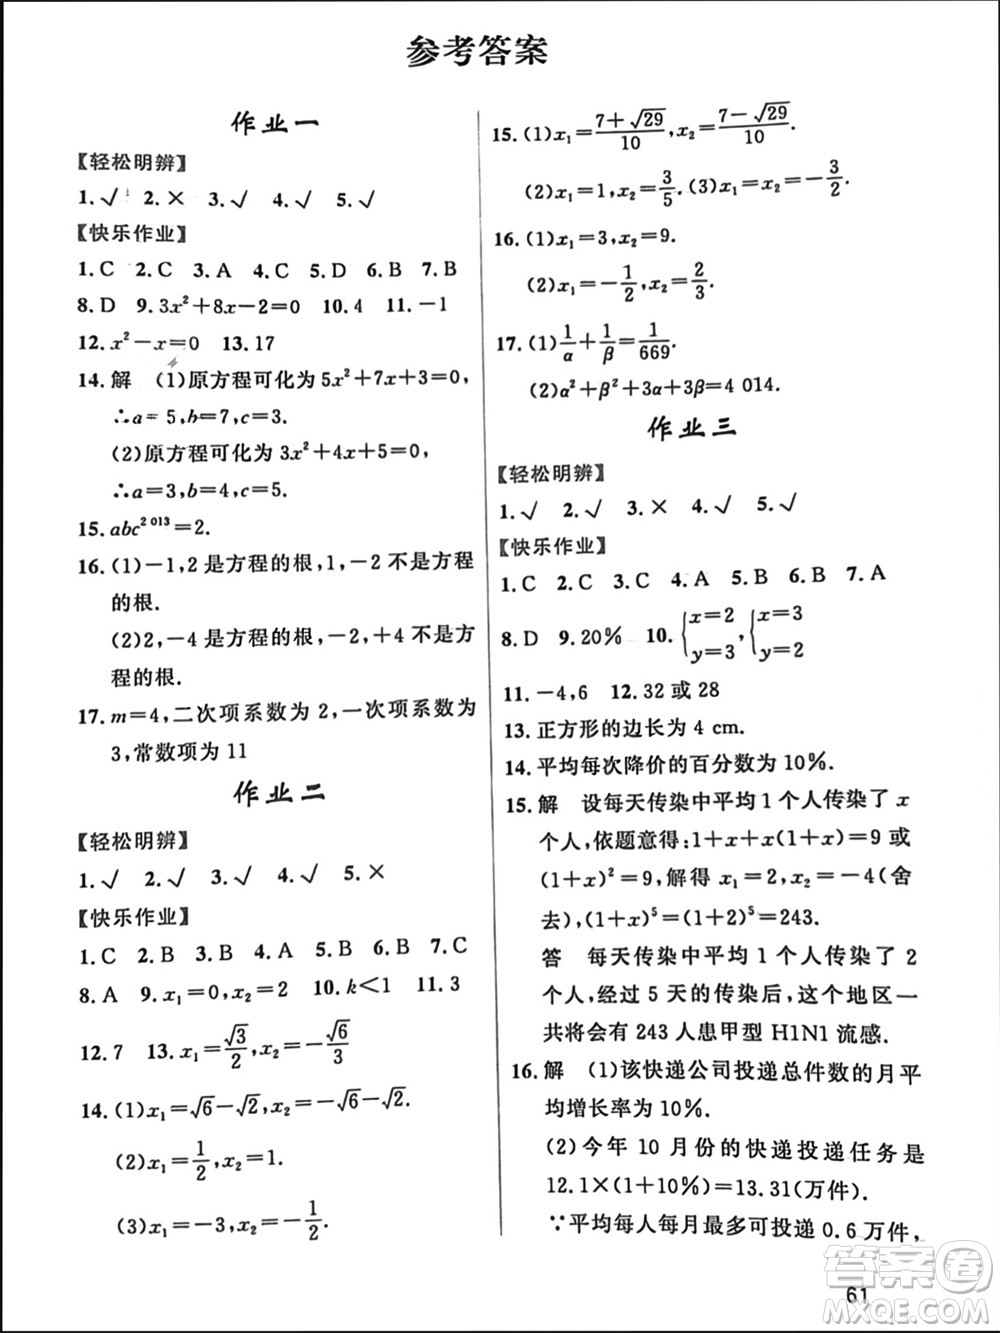 参考答案
作业一
【轻松明辨】
1.√ 2.× 3.√ 4.√ 5.√
【快乐作业】
1.C 2.C 3.A 4.C 5.D 6.B 7.B
8.D 9.3x²+8x-2=0 10.4 11.-1
12.x²-x=0 13.17
14.解 (1)原方程可化为5x²+7x+3=0,
∴a=5,b=7,c=3.
(2)原方程可化为3x²+4x+5=0,
∴a=3,b=4,c=5.
15.abc^{2 013}=2.
16.(1)-1,2是方程的根,1,-2不是方程
的根.
(2)2,-4是方程的根,-2,+4不是方
程的根.
17.m=4,二次项系数为2,一次项系数为
3,常数项为11
作业二
【轻松明辨】
1.√ 2.√ 3.√ 4.√ 5.×
【快乐作业】
1.C 2.B 3.B 4.A 5.B 6.B 7.C
8.A 9.x₁=0,x₂=2 10.k<1 11.3
12.7 13.x₁=√3/2,x₂=-√6/3
14.(1)x₁=√6-√2,x₂=-√6-√2
(2)x₁=1/2,x₂=1.
(3)x₁=-3,x₂=-1/2.
15.(1)x₁=(7+√29)/10,x₂=(7-√29)/10.
(2)x₁=1,x₂=3/5.(3)x₁=x₂=-3/2.
16.(1)x₁=3,x₂=9.
(2)x₁=-1/2,x₂=2/3.
17.(1)1/α+1/β=1/669.
(2)α²+β²+3α+3β=4 014.
作业三
【轻松明辨】
1.√ 2.√ 3.× 4.√ 5.√
【快乐作业】
1.C 2.C 3.C 4.A 5.B 6.B 7.A
8.D 9.20% 10.{x=2 y=3,{x=3 y=2
11.-4,6 12.32或28
13.正方形的边长为4 cm.
14.平均每次降价的百分数为10%.
15.解 设每天传染中平均1个人传染了x
个人,依题意得:1+x+x(1+x)=9或
(1+x)²=9,解得x₁=2,x₂=-4(舍
去),(1+x)⁵=(1+2)⁵=243.
答 每天传染中平均1个人传染了2
个人,经过5天的传染后,这个地区一
共将会有243人患甲型H1N1流感.
16.解 (1)该快递公司投递总件数的月平
均增长率为10%.
(2)今年10月份的快递投递任务是
12.1×(1+10%)=13.31(万件).
∵平均每人每月最多可投递0.6万件,
答案圈
MXQE.COM
61